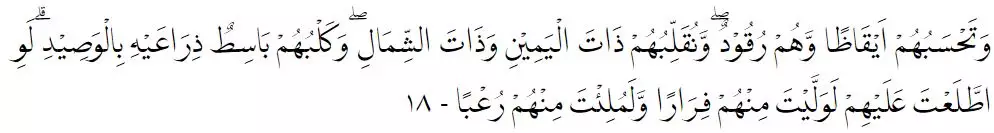 وَتَحْسَبُهُمْ اَيْقَاظًا وَّهُمْ رُقُوْدٌ ۖوَّنُقَلِّبُهُمْ ذَاتَ الْيَمِيْنِ وَذَاتَ الشِّمَالِ ۖوَكَلْبُهُمْ بَاسِطٌ ذِرَاعَيْهِ بِالْوَصِيْدِۗ لَوِ
اطَّلَعْتَ عَلَيْهِمْ لَوَلَّيْتَ مِنْهُمْ فِرَارًا وَّلَمُلِئْتَ مِنْهُمْ رُعْبًا - ١٨